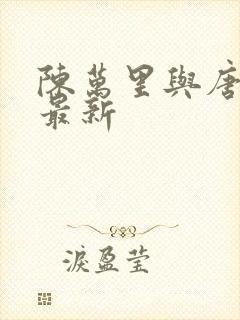 陳萬里與唐
最新
淚盈莹